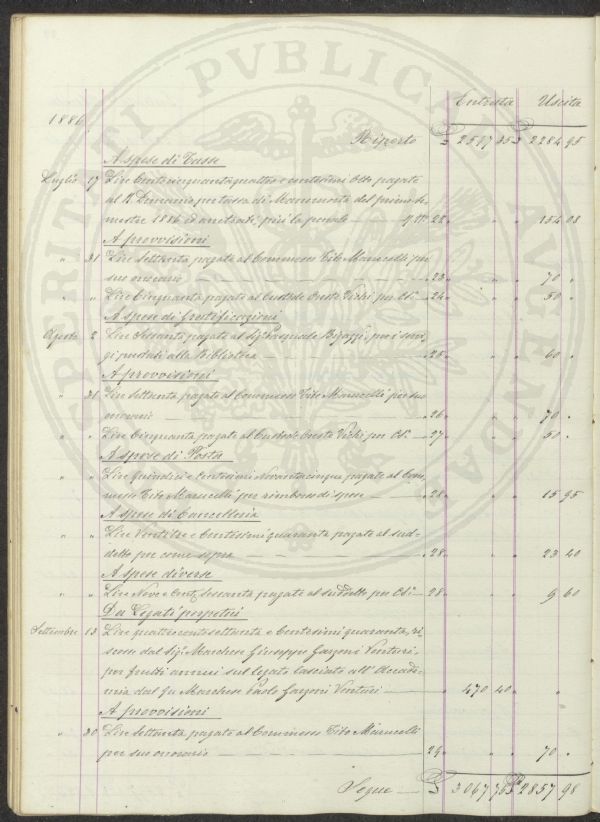 Entrata Uscita
1886
Riporto £ 2597 35 £ 2284 95
A spese di Tasse
Luglio 17 Lire Centocinquantaquattro e centesimi Otto pagate
al R. Demanio per tassa di Manomorta del primo Se-
mestre 1886 ed arretrati, più la penale — 22 " " " 154 08
A provvisioni
" 31 Lire settanta pagate al Commesso Tito Marucelli per
suo onorario — 23 " " " 70 "
" " Lire Cinquanta pagate al Custode Oreste Vichi per Cs. — 24 " " " 50 "
A spese di gratificazioni
Agosto 2 Lire Sessanta pagate al Sig. Pasquale Bigazzi per i servi-
gi prestati alla Biblioteca — 25 " " " 60 "
A provvisioni
" 31 Lire settanta pagate al Commesso Tito Marucelli per suo
onorario — 26 " " " 70 "
" " Lire Cinquanta pagate al Custode Oreste Vichi per Cs. — 27 " " " 50 "
A spese di Posta
" " Lire quindici e Centesimi Novantacinque pagate al Com-
messo Tito Marucelli per rimborso di spese — 28 " " " 15 95
A spese di Cancelleria
" " Lire Ventitre e Centesimi quaranta pagate al sud-
detto per come sopra — 28 " " " 23 40
A spese diverse
" " Lire Nove e Cent. sessanta pagate al suddetto per Cs. — 28 " " " 9 60
Da Legati perpetui
Settembre 13 Lire quattrocentosettanta e Centesimi quaranta, ri-
scosse dal Sig. Marchese Giuseppe Garzoni Venturi,
per frutti annui sul legato lasciato all'Accade-
mia dal fu Marchese Paolo Garzoni Venturi — " 470 40 " "
A provvisioni
" 30 Lire settanta, pagate al Commesso Tito Marucelli
per suo onorario — 29 " " " 70 "
Segue — £ 3067 75 £ 2857 98
PROSPERITATI PVBLICAE AVGENDAE